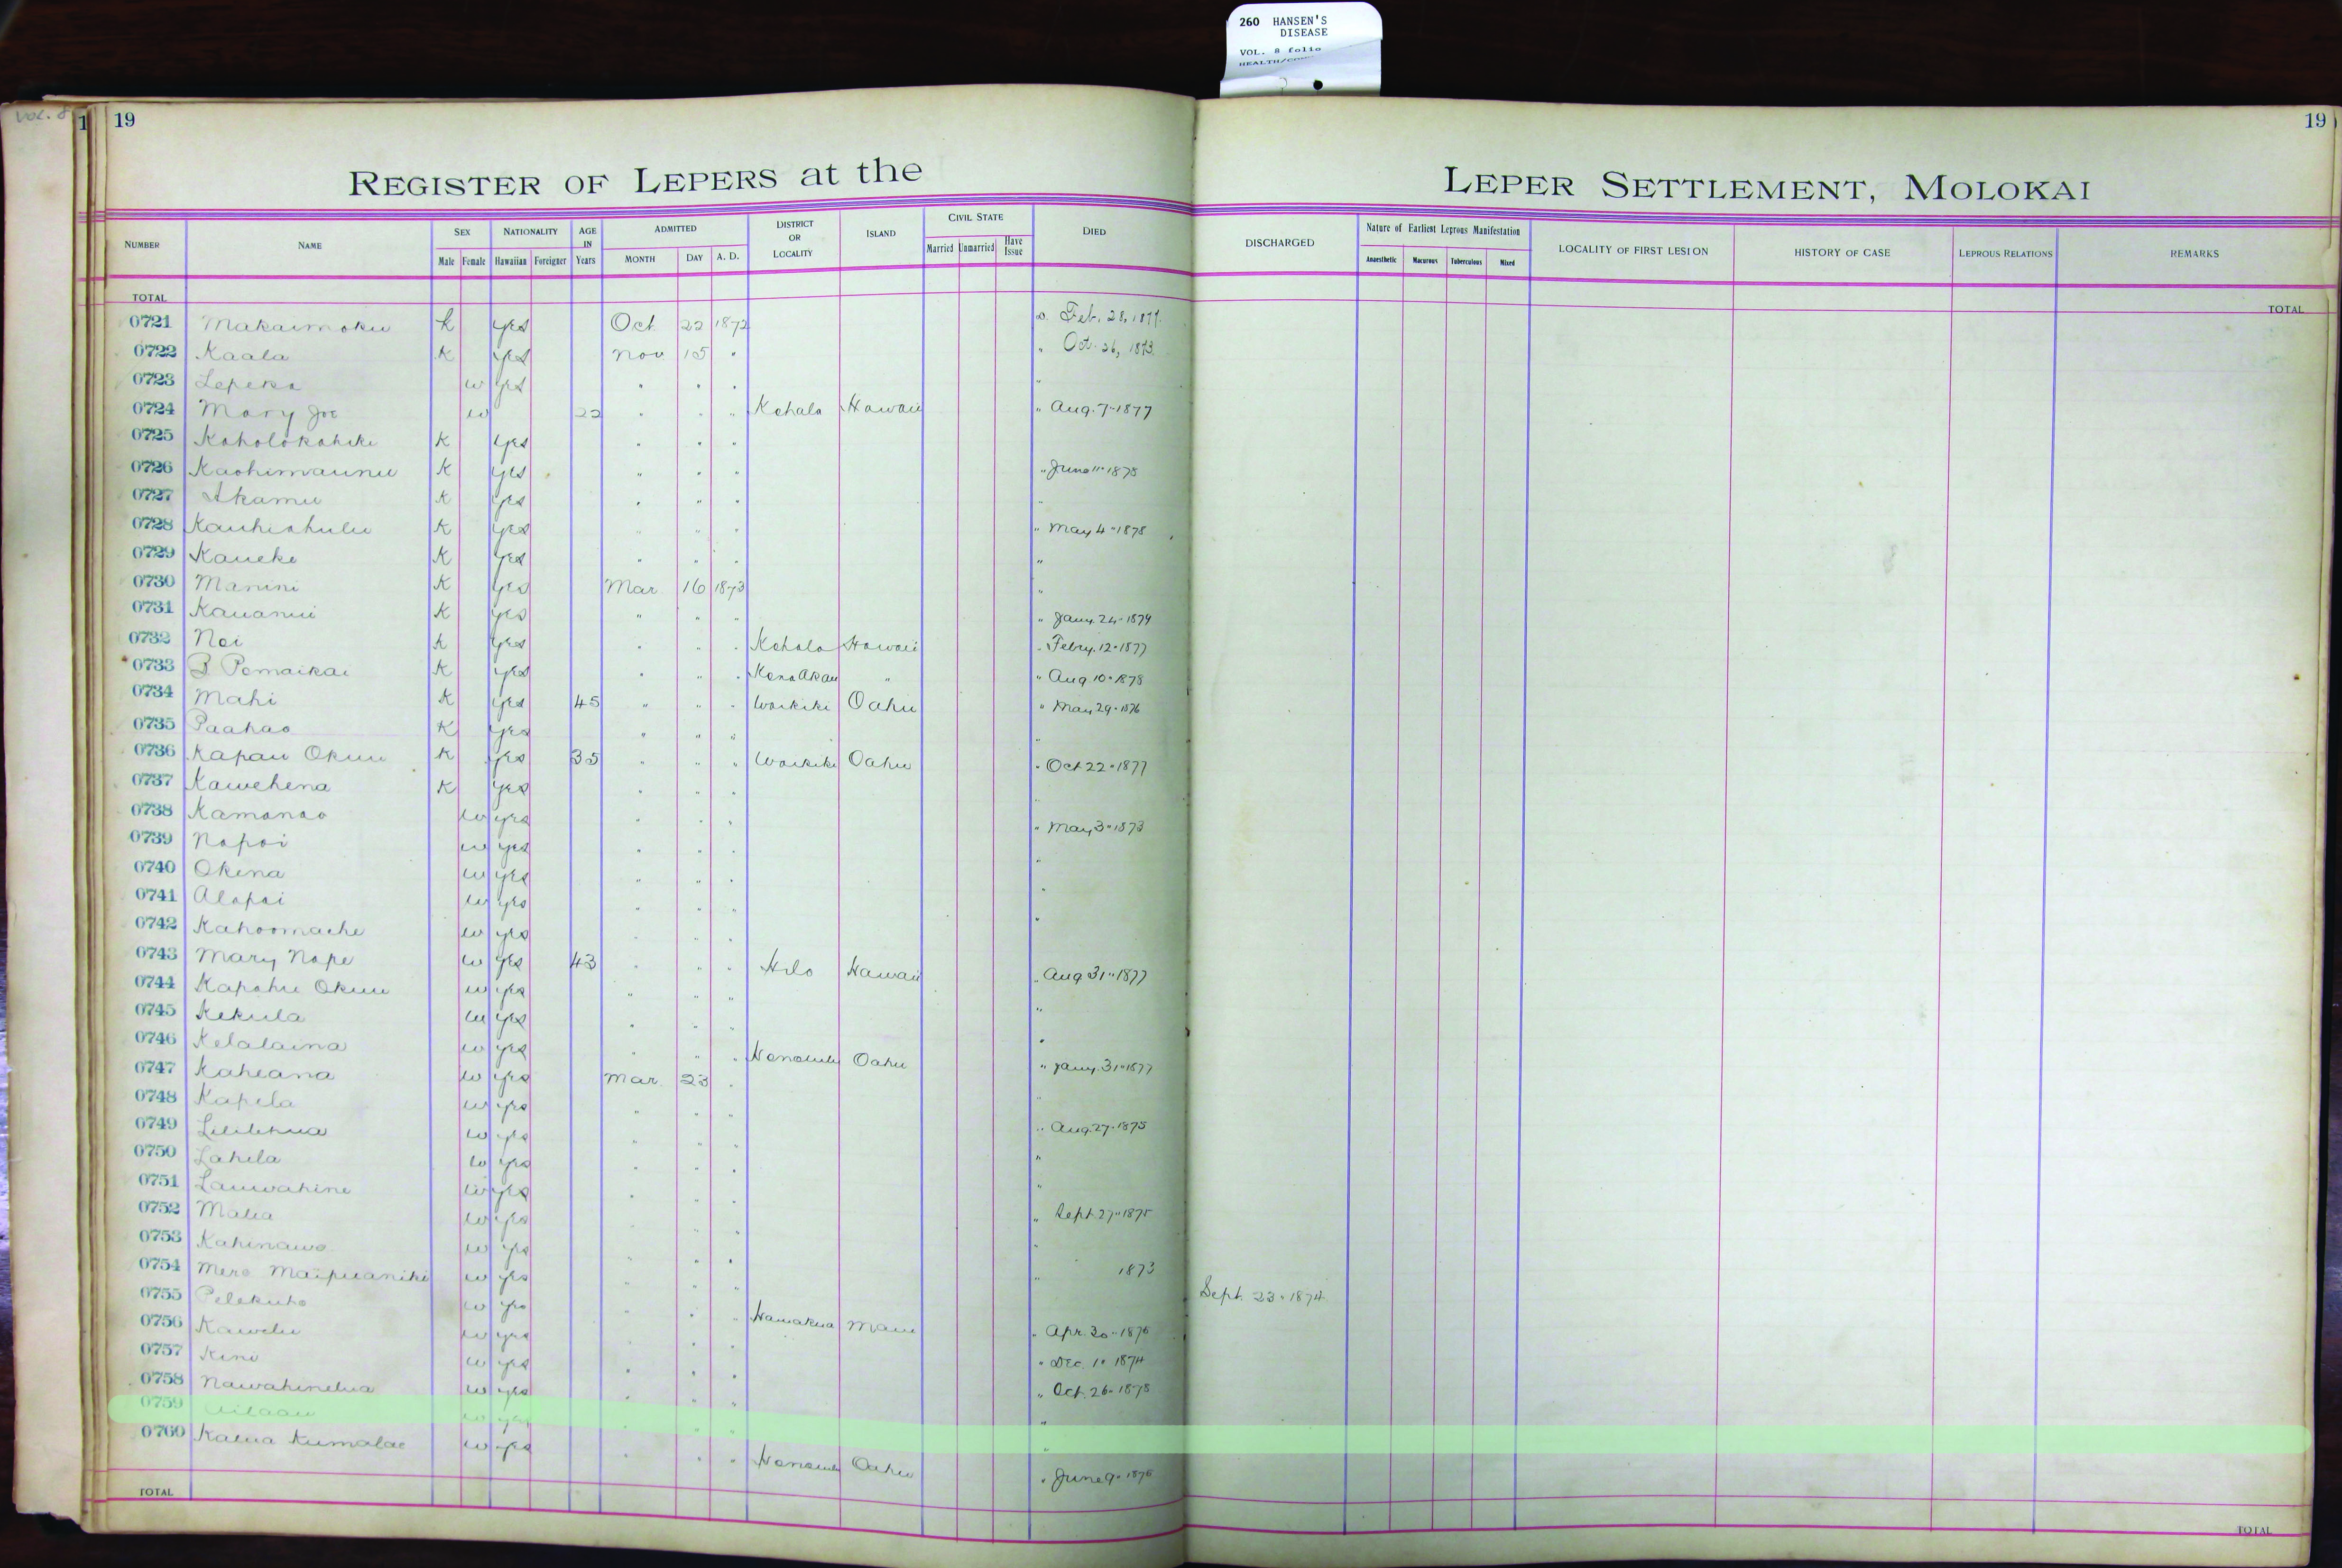 260 HANSEN'S
DISEASE
VOL. 8 folio
Vol. 8
1 19 19
REGISTER OF LEPERS at the LEPER SETTLEMENT, MOLOKAI
NUMBER NAME SEX NATIONALITY AGE IN Years ADMITTED DISTRICT OR LOCALITY ISLAND CIVIL STATE DIED DISCHARGED Nature of Earliest Leprous Manifestation LOCALITY OF FIRST LESION HISTORY OF CASE LEPROUS RELATIONS REMARKS
Male Female Hawaiian Foreigner MONTH DAY A. D. Married Unmarried Have Issue Anaesthetic Macurous Tuberculous Mixed
TOTAL TOTAL
0721 Makaimoku k yes Oct. 22 1872 Feb. 28, 1877.
0722 Kaala K yes Nov 15 " " Oct. 26, 1873.
0723 Lepeka w yes " " " "
0724 Mary Joe w 22 " " " Kohala Hawaii " Aug. 7" 1877
0725 Koholokahiki K yes " " "
0726 Kaohimaunu K yes " " " " June 11" 1875
0727 Akamu K yes " " " "
0728 Kauhiahulu K yes " " " " May 4" 1878
0729 Kaueke K yes " " " "
0730 Manini K yes Mar 16 1873 "
0731 Kauanui K yes " " " " Jany. 24" 1879
0732 Noi K yes " " " Kohala Hawaii " Febry. 12" 1877
0733 B Pomaikai K yes " " " Kona Akau " " Aug 10" 1878
0734 Mahi K yes 45 " " " Waikiki Oahu " May 29" 1876
0735 Paahao K yes " " " "
0736 Kapau Okuu K yes 35 " " " Waikiki Oahu " Oct 22" 1877
0737 Kawehena K yes " " " "
0738 Kamanao w yes " " " " May 3" 1873
0739 Napoi w yes " " " "
0740 Okina w yes " " " "
0741 Alapai w yes " " " "
0742 Kahoomache w yes " " "
0743 Mary Nape w yes 43 " " " Hilo Hawaii " Aug 31" 1877
0744 Kapahu Okuu w yes " " " "
0745 Kekula w yes " " " "
0746 Kelalaina w yes " " " Honolulu Oahu " Jany. 31" 1877
0747 Kaheana w yes Mar. 23 " "
0748 Kapela w yes " " " " Aug. 27" 1875
0749 Lililehua w yes " " "
0750 Lahela w yes " " " "
0751 Lauwahine w yes " " " "
0752 Malia w yes " " " " Sept. 27" 1875
0753 Kahinawe w yes " " " "
0754 Mere Maipuaniki w yes " " " " 1873
0755 Pelekuho w yes " " " Sept. 23" 1874
0756 Kawelu w yes " " " Hamakua Maui " Apr. 30" 1876
0757 Kini w yes " " " " Dec. 1" 1874
0758 Nawahinelua w yes " " " " Oct. 26" 1878
0759 w yes " " " "
0760 Kalua Kumalae w yes " " " Honolulu Oahu " June 9" 1876
TOTAL TOTAL